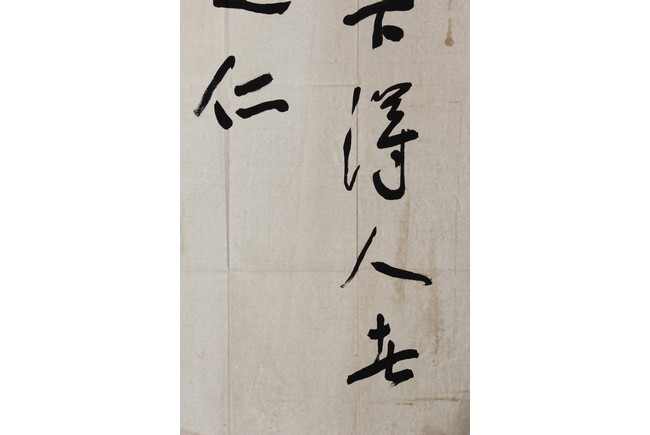 下得人者
仁